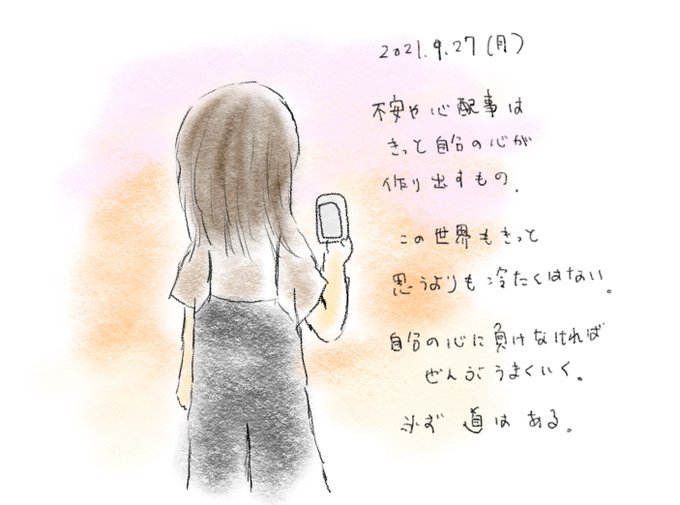 2021.9.27(月)
不安や心配事は
きっと自分の心が
作り出すもの.
この世界もきっと
思うよりも冷たくはない。
自分の心に負けなければ
ぜんぶうまくいく。
必ず 道は ある。